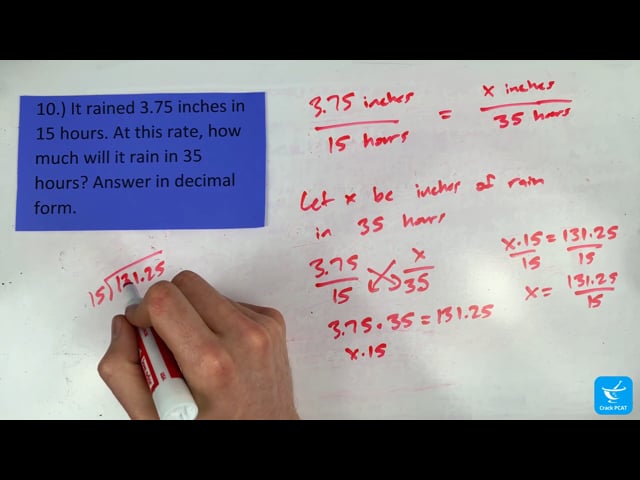 10.) It rained 3.75 inches in
15 hours. At this rate, how
much will it rain in 35
hours? Answer in decimal
form.
3.75 inches / 15 hours = x inches / 35 hours
Let x be inches of rain
in 35 hours
3.75 / 15 x / 35
3.75 · 35 = 131.25
x · 15
x · 15 / 15 = 131.25 / 15
x = 131.25 / 15
15)131.25
Crack PCAT